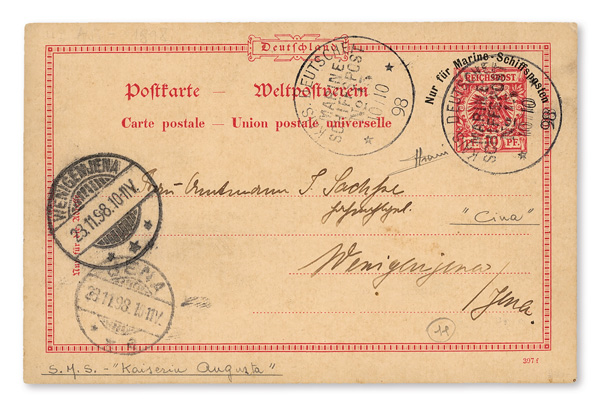 Deutschland
Postkarte – Weltpostverein
Carte postale – Union postale universelle
Nur für Marine-Schiffsposten
REICHSPOST
10 PF.
KAIS. DEUTSCHE
MARINE-
SCHIFFSPOST
No
10/10
98
KAIS. DEUTSCHE
MARINE-
SCHIFFSPOST
No
10/10
98
Frau Amtmann I. Sachse
"Cina"
Wenigenjena
Jena
WENIGENJENA
23.11.98.10-11V.
JENA
23.11.98.10-11V.
S.M.S. - "Kaiserin Augusta"